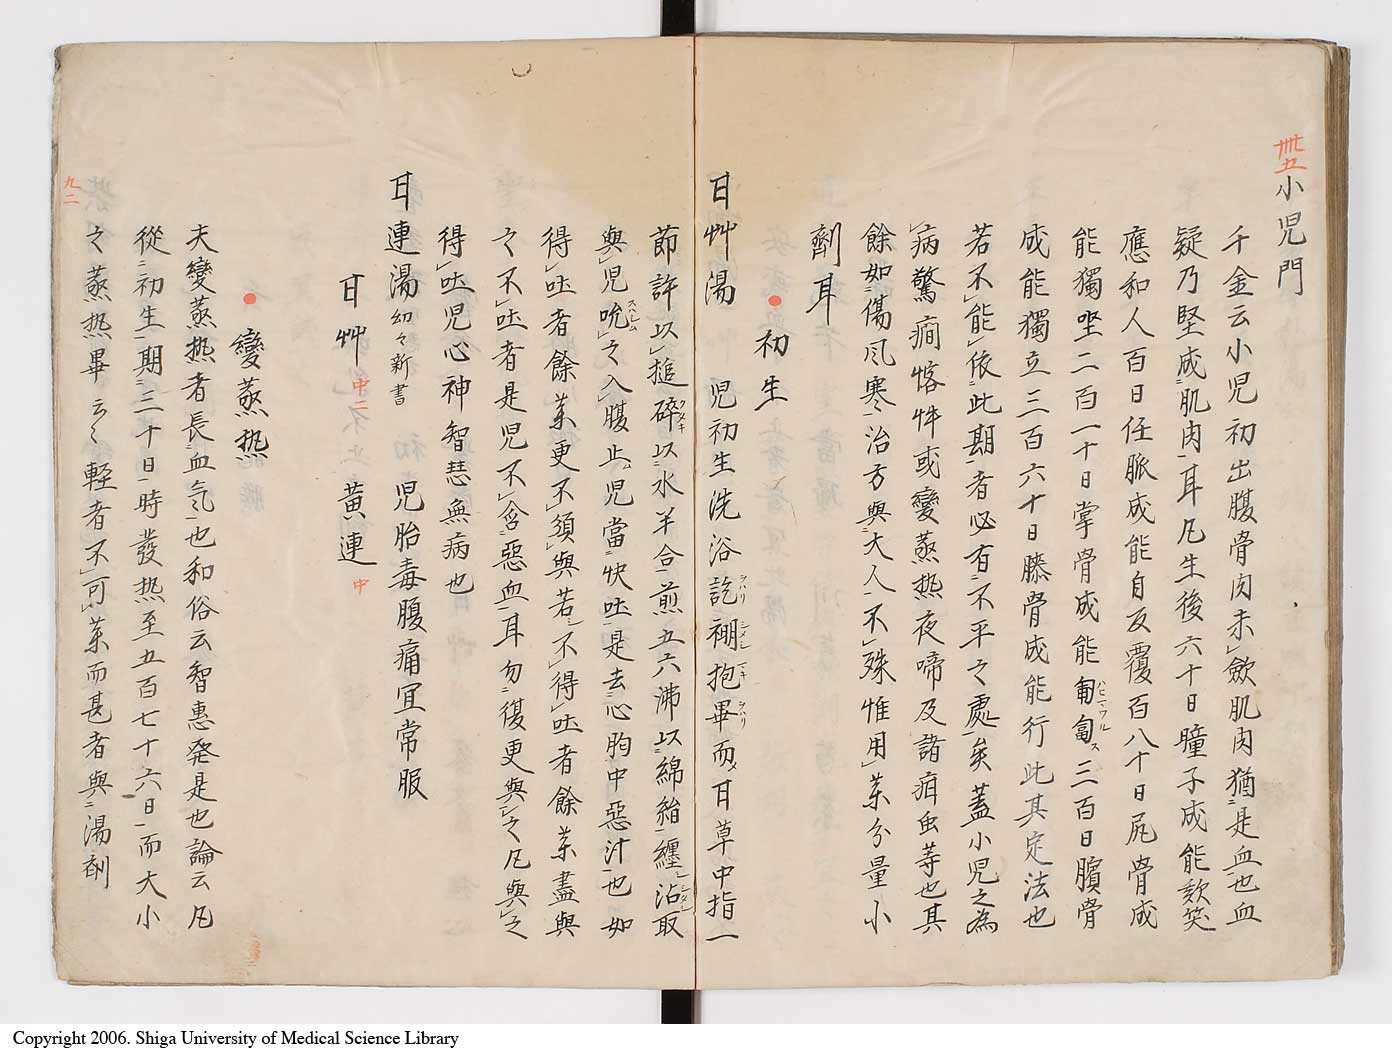 卅五 小児門
千金云小児初出腹骨肉未斂肌肉猶是血也血
疑乃堅成肌肉耳凡生後六十日瞳子成能欬笑
應和人百日任脈成能自反覆百八十日尻骨成
能獨坐二百一十日掌骨成能匍匐三百日臏骨
成能獨立三百六十日膝骨成能行此其定法也
若不能依此期者必有不平之處矣蓋小児之為
病驚癇客忤或變蒸热夜啼及諸疳虫等也其
餘如傷风寒治方與大人不殊惟用薬分量小
劑耳
初生
甘艸湯 児初生洗浴訖褓抱畢而甘草中指一
節許以搥碎以水半合煎五六沸以綿纏沾取
與児吮之入腹止児當快吐是去心胸中惡汁也如
得吐者餘薬更不須與若不得吐者餘薬盡與
之不吐者是児不含惡血耳勿復更與之凡與之
得吐児心神智慧無病也
甘連湯 幼々新書 初 児胎毒腹痛宜常服
甘艸 中二 黃連 中
變蒸热
夫變蒸热者長血气也和俗云智惠発是也論云凡
從初生期三十日時發热至五百七十六日而大小
之蒸热畢云々輕者不可薬而甚者與湯剤
九二
Copyright 2006. Shiga University of Medical Science Library